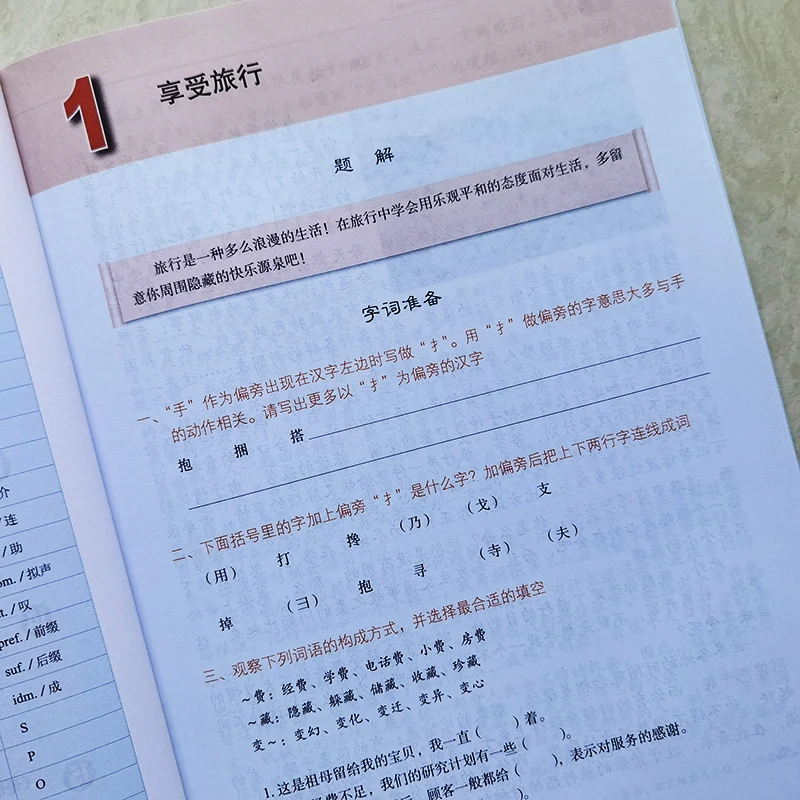 1 享受旅行
题 解
旅行是一种多么浪漫的生活！在旅行中学会用乐观平和的态度面对生活，多留
意你周围隐藏的快乐源泉吧！
字词准备
一、“手”作为偏旁出现在汉字左边时写做“扌”。用“扌”做偏旁的字意思大多与手
的动作相关。请写出更多以“扌”为偏旁的汉字
抱 捆 搭
二、下面括号里的字加上偏旁“扌”是什么字？加偏旁后把上下两行字连线成词
（用） 打 搀 （乃） （戈） 支
掉 （彐） 抱 寻 （寺） （夫）
三、观察下列词语的构成方式，并选择最合适的填空
～费：经费、学费、电话费、小费、房费
～藏：隐藏、躲藏、储藏、收藏、珍藏
变～：变幻、变化、变迁、变异、变心
1. 这是祖母留给我的宝贝，我一直（ ）着。
费不足，我们的研究计划有一些（ ）。
顾客一般都给（ ），表示对服务的感谢。
（ ）。
介
/ 连
/ 助
om. / 拟声
t. / 叹
pref. / 前缀
suf. / 后缀
idm. / 成
S
P
O